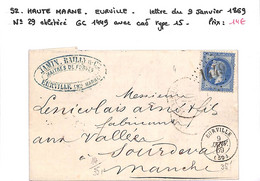 52. HAUTE MARNE. EURVILLE. lettre du 9 Janvier 1869
N° 29 oblitéré GC 1449 avec cad type 15. Prix: 14€
JAMIN, BAILLY & Cie
MAITRES DE FORGES
EURVILLE (HTE MARNE)
Messieurs
Lenicolais aîné & fils
fabricants
aux Vallées
à Sourdeval
Manche
EURVILLE
9
JANV.
69
(50)